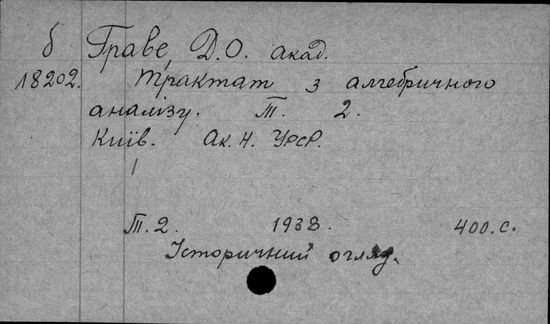 б Граве, Д.О. акад.
18202. Трактат з алгебричного
аналізу. Т. 2.
Київ. Ак. Н. УРСР.
Т. 2. 1938. 400. с.
Історичний огляд.